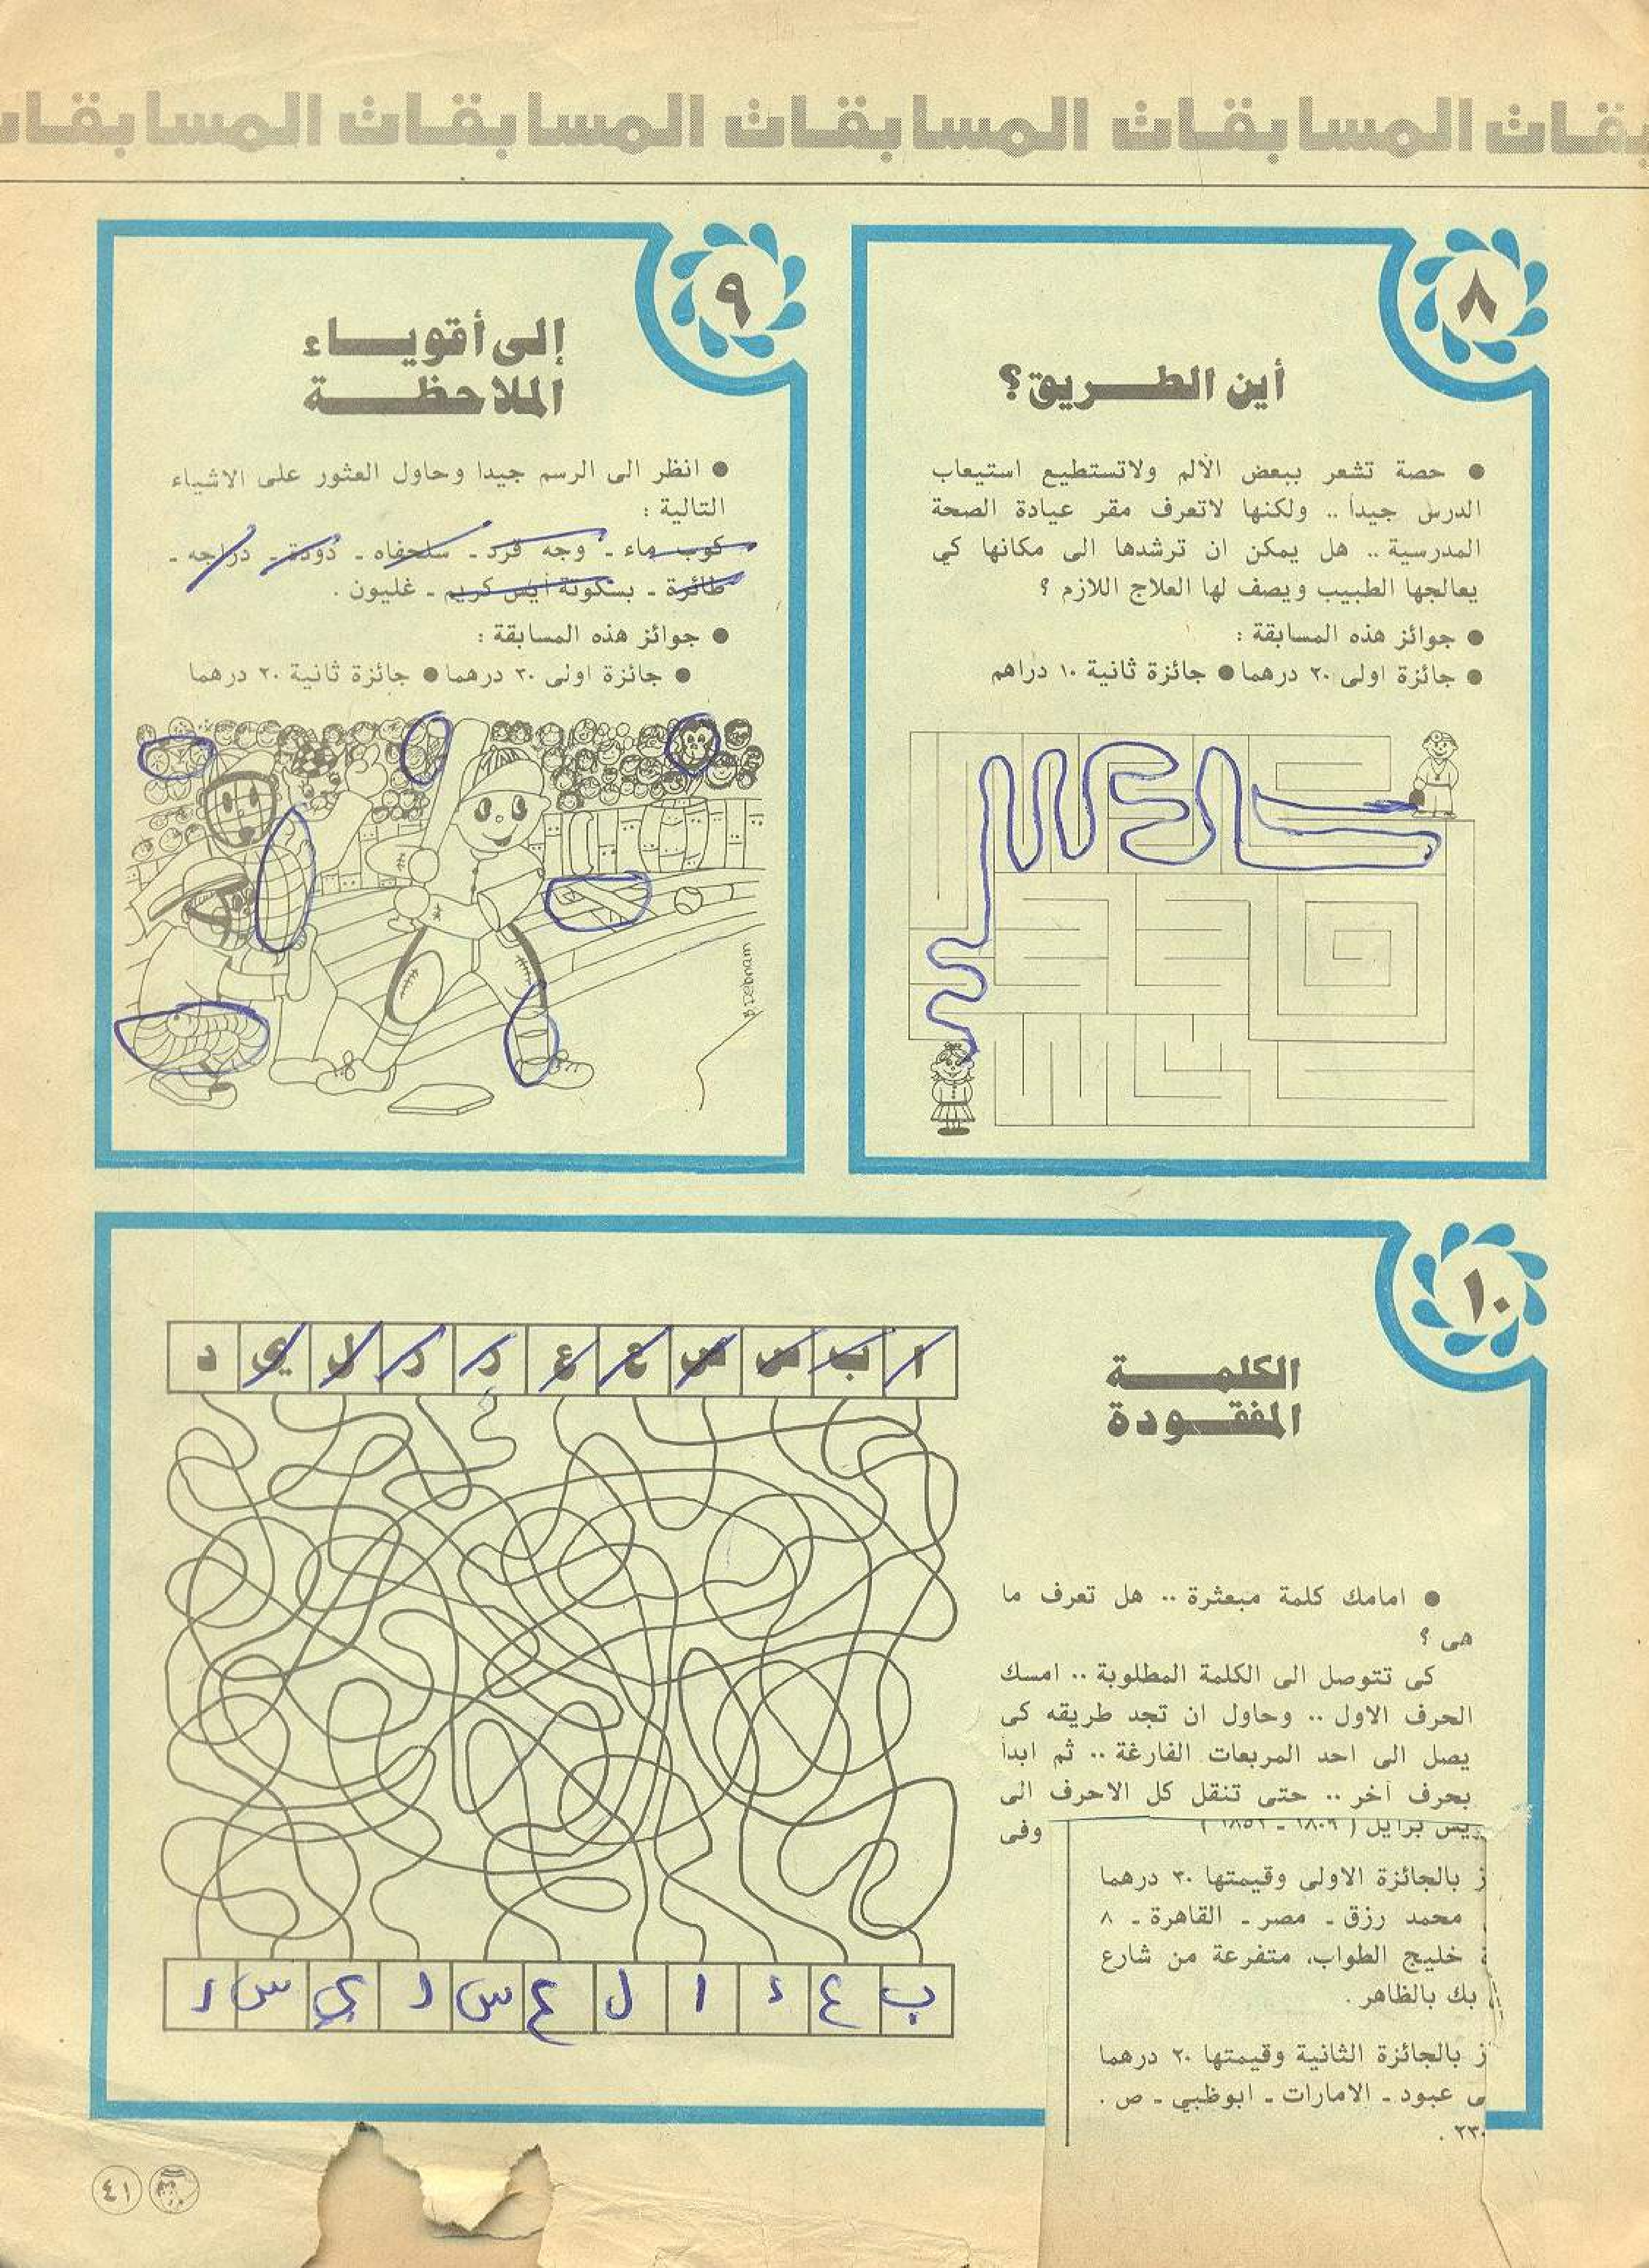 بقات المسابقات المسابقات المسابقات المسابقات
٨
أين الطريق؟
● حصة تشعر ببعض الألم ولاتستطيع استيعاب
الدرس جيداً .. ولكنها لاتعرف مقر عيادة الصحة
المدرسية .. هل يمكن ان ترشدها الى مكانها كي
يعالجها الطبيب ويصف لها العلاج اللازم ؟
● جوائز هذه المسابقة :
● جائزة اولى ٢٠ درهما ● جائزة ثانية ١٠ دراهم
٩
إلى أقوياء
الملاحظة
● انظر الى الرسم جيدا وحاول العثور على الاشياء
التالية :
كوب ماء - وجه قرد - سلحفاه - دودة - دراجه -
طائرة - بسكوتة أيس كريم - غليون .
● جوائز هذه المسابقة :
● جائزة اولى ٣٠ درهما ● جائزة ثانية ٢٠ درهما
١٠
الكلمة
المفقودة
● امامك كلمة مبعثرة .. هل تعرف ما
هى ؟
كى تتوصل الى الكلمة المطلوبة .. امسك
الحرف الاول .. وحاول ان تجد طريقه كى
يصل الى احد المربعات الفارغة .. ثم ابدأ
بحرف آخر .. حتى تنقل كل الاحرف الى
وفى
يس برايل ( ١٨٠٩ - ١٨٥٢ )
ز بالجائزة الاولى وقيمتها ٣٠ درهما
محمد رزق - مصر - القاهرة - ٨
خليج الطواب، متفرعة من شارع
بك بالظاهر .
ز بالجائزة الثانية وقيمتها ٢٠ درهما
ى عبود - الامارات - ابوظبي - ص .
٢٣٠ .
ا ب س س ع ع ر ر ل ي د
ب ع ء ا ل ع س ر ي س ر
٤١